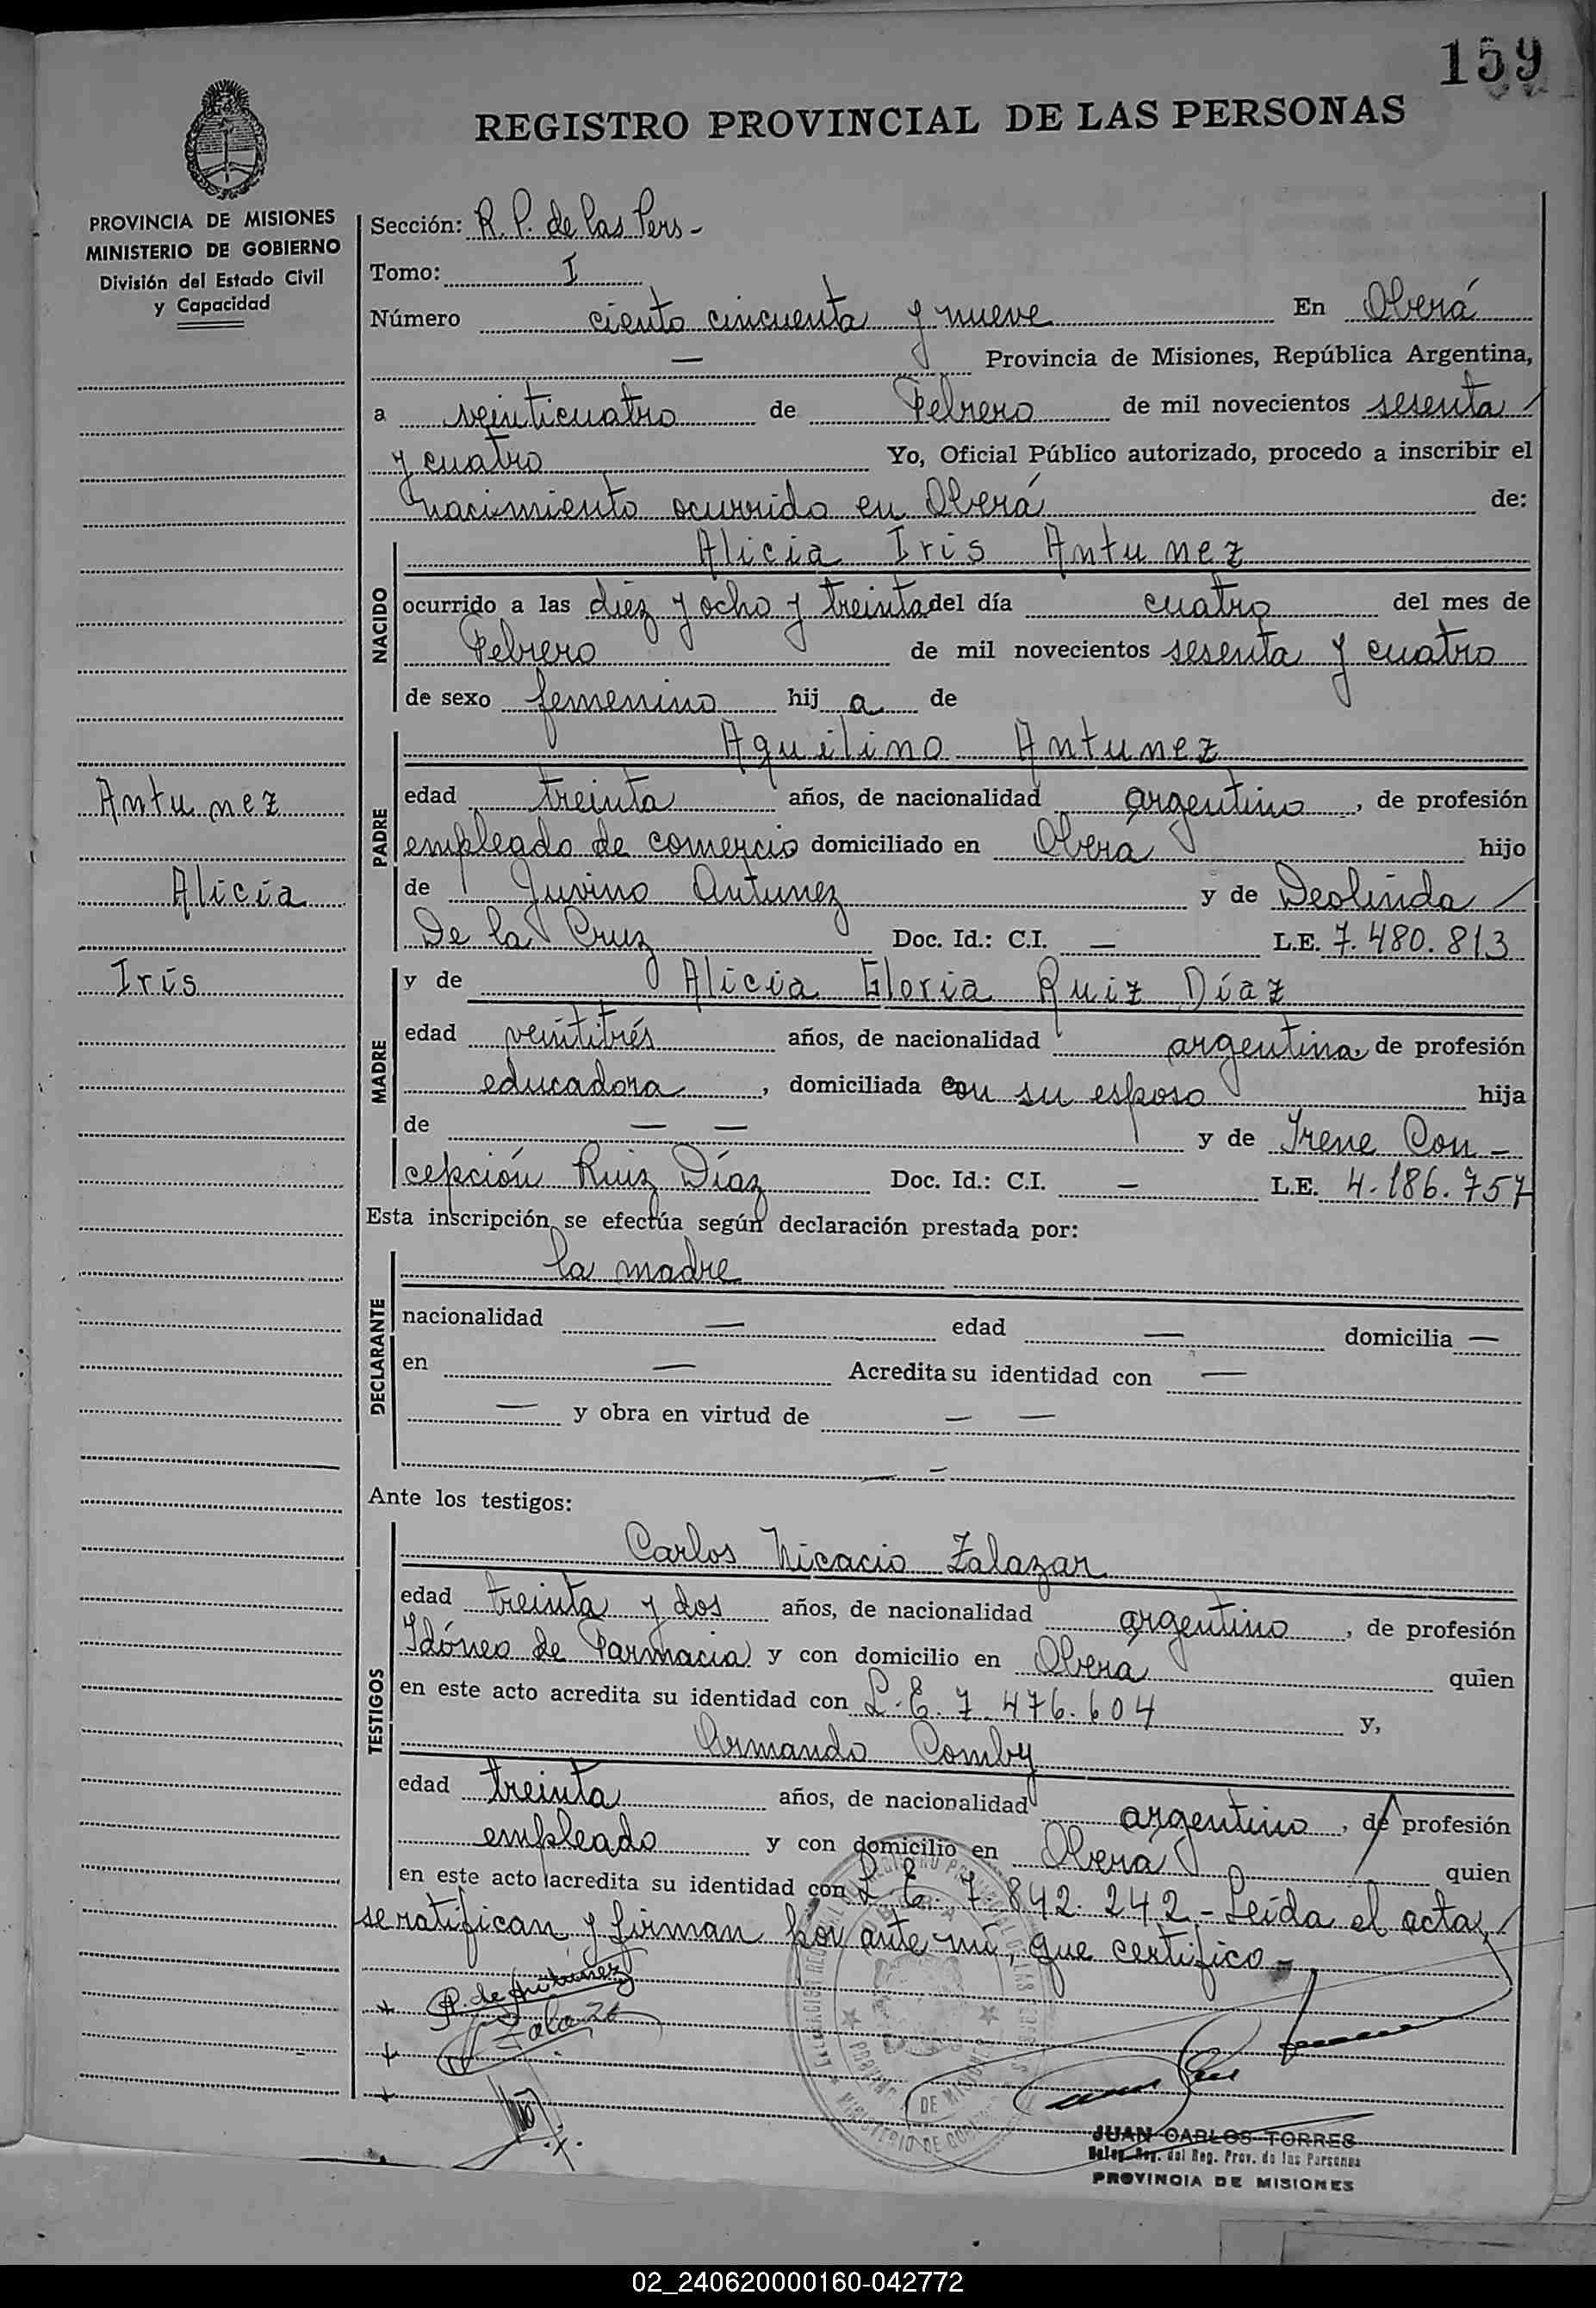 159
REGISTRO PROVINCIAL DE LAS PERSONAS
PROVINCIA DE MISIONES
MINISTERIO DE GOBIERNO
División del Estado Civil
y Capacidad
Sección: R. P. de las Pers -
Tomo: I
Número ciento cincuenta y nueve En Oberá
— Provincia de Misiones, República Argentina,
a veinticuatro de Febrero de mil novecientos sesenta /
y cuatro Yo, Oficial Público autorizado, procedo a inscribir el
nacimiento ocurrido en Oberá de:
NACIDO
Alicia Iris Antunez
ocurrido a las diez y ocho y treinta del día cuatro del mes de
Febrero de mil novecientos sesenta y cuatro
de sexo femenino hij a de
PADRE
Aquilino Antunez
edad treinta años, de nacionalidad argentino, de profesión
empleado de comercio domiciliado en Oberá hijo
de Juvino Antunez y de Deolinda /
De la Cruz Doc. Id.: C.I. — L.E. 7.480.813
Antunez
Alicia
Iris
MADRE
y de Alicia Gloria Ruiz Díaz
edad veintitrés años, de nacionalidad argentina, de profesión
educadora, domiciliada con su esposo hija
de — — y de Irene Con -
cepción Ruiz Díaz Doc. Id.: C.I. — L.E. 4.186.757
Esta inscripción se efectúa según declaración prestada por:
DECLARANTE
la madre
nacionalidad — edad — domicilia —
en — Acredita su identidad con —
— y obra en virtud de — —
— —
Ante los testigos:
TESTIGOS
Carlos Nicacio Zalazar
edad treinta y dos años, de nacionalidad argentino, de profesión
Idóneo de Farmacia y con domicilio en Oberá quien
en este acto acredita su identidad con L.E. 7.476.604 y,
Armando Comby
edad treinta años, de nacionalidad argentino, de profesión
empleado y con domicilio en Oberá quien
en este acto acredita su identidad con L.E. 7.842.242 - Leída el acta, /
se ratifican y firman por ante mi, que certifico -
R. de Antunez
JUAN CARLOS TORRES
Deleg. Reg. del Reg. Prov. de las Personas
PROVINCIA DE MISIONES
02_240620000160-042772